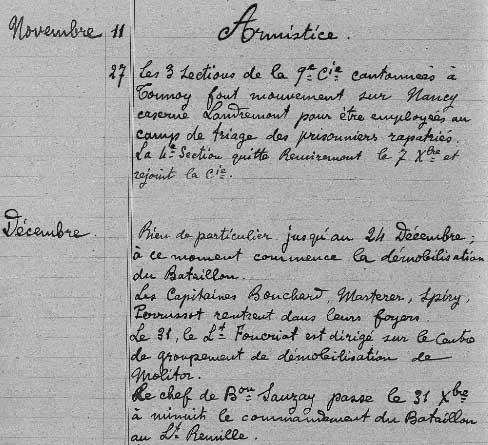 Novembre 11 Armistice.
27 Les 3 Sections de la 9e Cie cantonnées à
Tonnoy font mouvement sur Nancy
caserne Landremont pour être employées au
camps de triage des prisonniers rapatriés.
La 4e Section quitte Remiremont le 7 Xbre et
rejoint la Cie.
Décembre. Rien de particulier jusqu'au 24 Décembre ;
à ce moment commence la démobilisation
du Bataillon.
Les Capitaines Bouchard, Marterer, Spiry,
Perrussot rentrent dans leurs foyers.
Le 31, le Lt Foucriat est dirigé sur le Centre
de groupement de démobilisation de
Molitor.
Le chef de Bon Sauzay passe le 31 Xbre
à minuit le commandement du Bataillon
au Lt Remille.